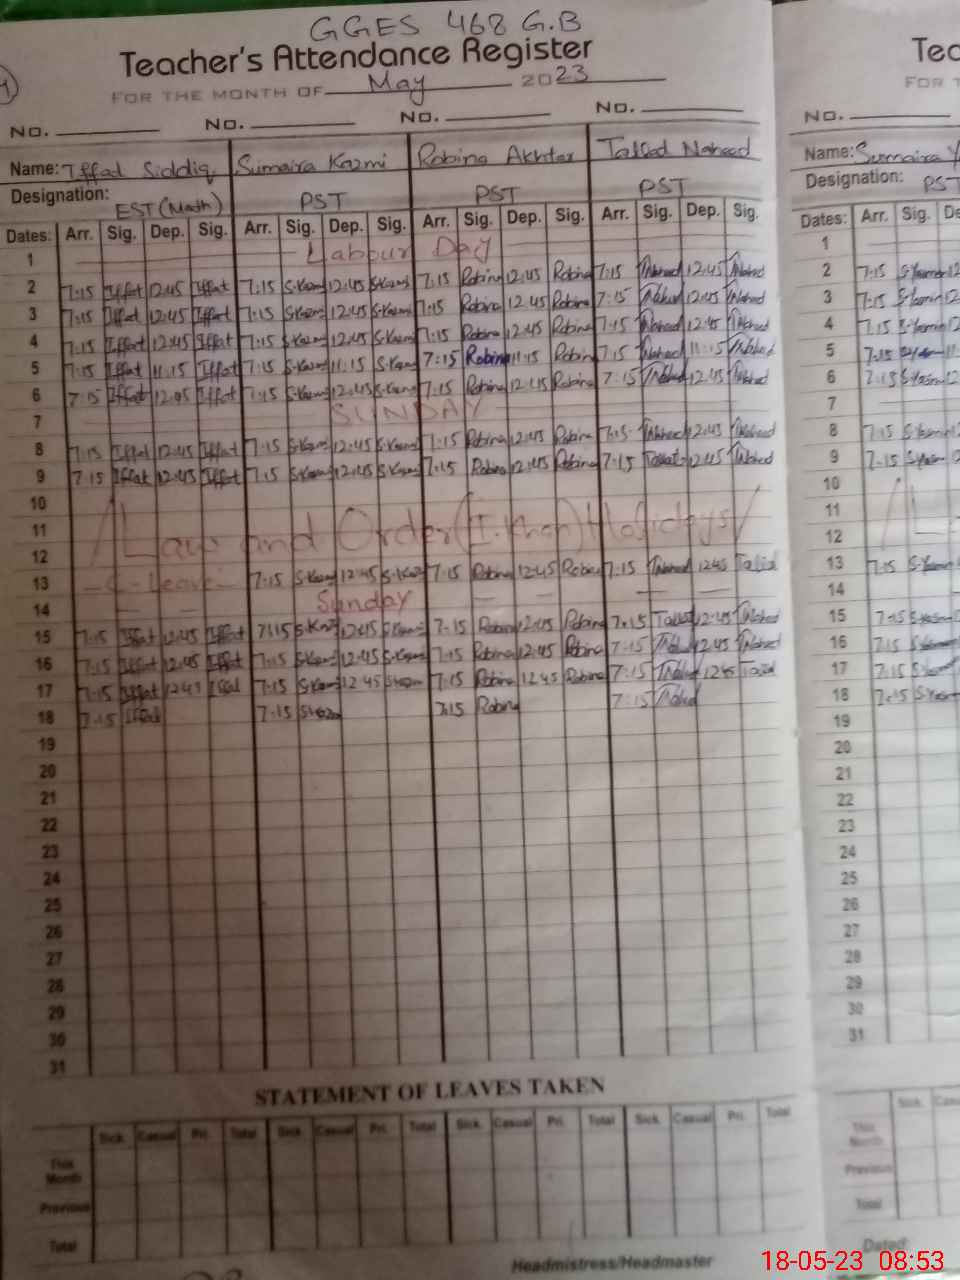 GGES 468 G.B
Teacher's Attendance Register
FOR THE MONTH OF May 2023
NO. NO. NO. NO.
Name: Iffat Siddiq Sumaira Kazmi Robina Akhtar Naheed
Designation: EST (Math) PST PST PST
Dates: Arr. Sig. Dep. Sig. Arr. Sig. Dep. Sig. Arr. Sig. Dep. Sig. Arr. Sig. Dep. Sig.
1 Labour Day
2 7:15 Iffat 12:45 Iffat 7:15 S.Kazmi 12:45 S.Kazmi 7:15 Robina 12:45 Robina 7:15 Naheed 12:45 Naheed
3 7:15 Iffat 12:45 Iffat 7:15 S.Kazmi 12:45 S.Kazmi 7:15 Robina 12:45 Robina 7:15 Naheed 12:45 Naheed
4 7:15 Iffat 12:45 Iffat 7:15 S.Kazmi 12:45 S.Kazmi 7:15 Robina 12:45 Robina 7:15 Naheed 12:45 Naheed
5 7:15 Iffat 11:15 Iffat 7:15 S.Kazmi 11:15 S.Kazmi 7:15 Robina 11:15 Robina 7:15 Naheed 11:15 Naheed
6 7:15 Iffat 12:45 Iffat 7:15 S.Kazmi 12:45 S.Kazmi 7:15 Robina 12:45 Robina 7:15 Naheed 12:45 Naheed
7 SUNDAY
8 7:15 Iffat 12:45 Iffat 7:15 S.Kazmi 12:45 S.Kazmi 7:15 Robina 12:45 Robina 7:15 Naheed 12:45 Naheed
9 7:15 Iffat 12:45 Iffat 7:15 S.Kazmi 12:45 S.Kazmi 7:15 Robina 12:45 Robina 7:15 12:45 Naheed
10
11 Law and Order (I.Khan) Holidays
12
13 Leave 7:15 S.Kazmi 12:45 S.Kazmi 7:15 Robina 12:45 Robina 7:15 Naheed 12:45
14 Sunday
15 7:15 Iffat 12:45 Iffat 7:15 S.Kazmi 12:45 S.Kazmi 7:15 Robina 12:45 Robina 7:15 12:45 Naheed
16 7:15 Iffat 12:45 Iffat 7:15 S.Kazmi 12:45 S.Kazmi 7:15 Robina 12:45 Robina 7:15 12:45 Naheed
17 7:15 Iffat 12:45 7:15 S.Kazmi 12:45 7:15 Robina 12:45 Robina 7:15 12:45
18 7:15 Iffat 7:15 7:15 Robina 7:15
19
20
21
22
23
24
25
26
27
28
29
30
31
STATEMENT OF LEAVES TAKEN
Sick Casual Pri. Total Sick Casual Pri. Total Sick Casual Pri. Total Sick Casual Pri. Total
This Month
Previous
Total
Headmistress/Headmaster
Tea
FOR T
NO.
Name: Sumaira Y
Designation: PST
Dates: Arr. Sig. De
1
2 7:15
3 7:15
4 7:15
5 7:15
6 7:15
7
8 7:15
9 7:15
10
11
12
13 7:15
14
15 7:15
16 7:15
17 7:15
18 7:15
19
20
21
22
23
24
25
26
27
28
29
30
31
Sick Cas
This Month
Previous
Total
Dated:
18-05-23 08:53